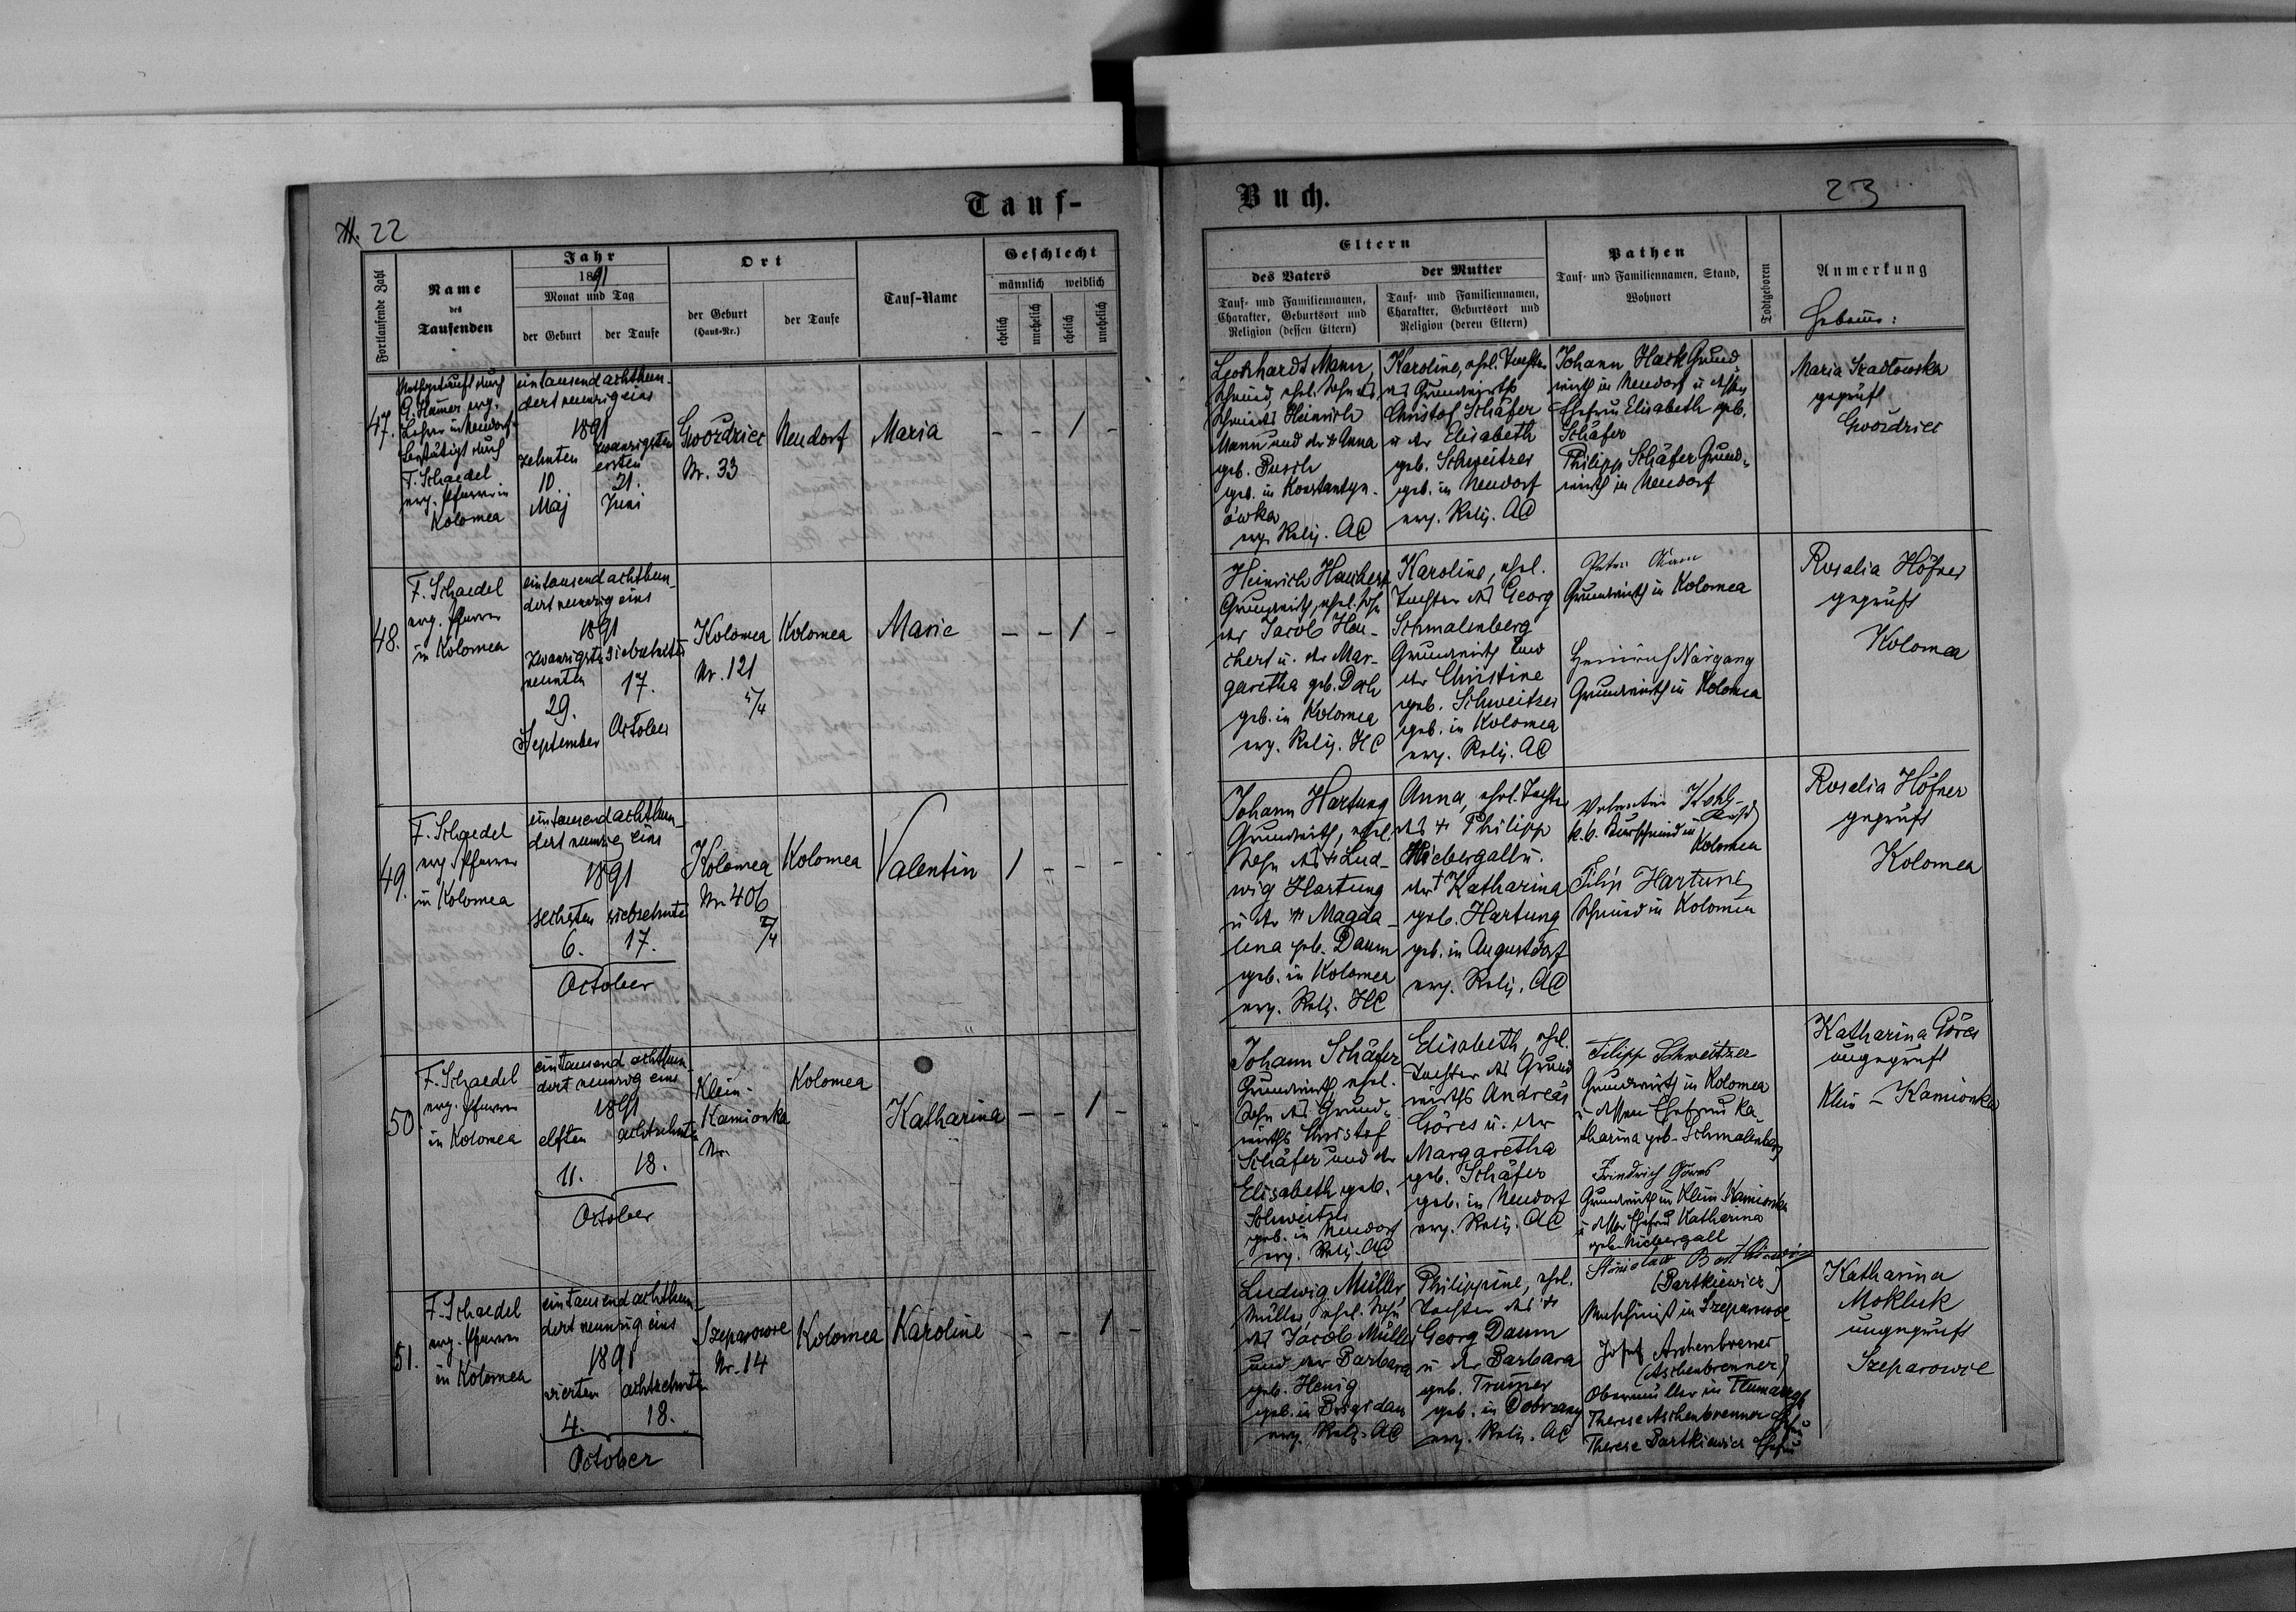 Tauf-
22
Fortlaufende Zahl
Name
des
Taufenden
Jahr
1891
Monat und Tag
der Geburt
der Taufe
Ort
der Geburt
(Haus-Nr.)
der Taufe
Tauf-Name
Geschlecht
männlich
weiblich
ehelich
unehelich
ehelich
unehelich
47.
Nothgetauft durch
G. Hamer evg.
Lehrer in Neudorf
bestätigt durch
F. Schaedel
evg. Pfarrer in
Kolomea
eintausend achthun-
dert neunzig eins
1891
zehnten
10.
Maj
zwanzigsten
ersten
21.
Juni
Gwozdziec
Nr. 33
Neudorf
Maria
- - 1 -
48.
F. Schaedel
evg. Pfarrer
in Kolomea
eintausend achthun-
dert neunzig eins
1891
zwanzigsten
neunten
29.
September
siebzehnten
17.
October
Kolomea
Nr. 121
Kolomea
Marie
- - 1 -
49.
F. Schaedel
evg. Pfarrer
in Kolomea
eintausend achthun-
dert neunzig eins
1891
sechsten
6.
siebzehnten
17.
October
Kolomea
Nr. 406
Kolomea
Valentin
1 - - -
50
F. Schaedel
evg. Pfarrer
in Kolomea
eintausend achthun-
dert neunzig eins
1891
elften
11.
achtzehnten
18.
October
Klein-
Kamionka
Nr.
Kolomea
Katharina
- - 1 -
51.
F. Schaedel
evg. Pfarrer
in Kolomea
eintausend achthun-
dert neunzig eins
1891
vierten
4.
achtzehnten
18.
October
Szeparowce
Nr. 14
Kolomea
Karoline
- - 1 -
Buch.
23
Eltern
des Vaters
Tauf- und Familiennamen,
Charakter, Geburtsort und
Religion (dessen Eltern)
der Mutter
Tauf- und Familiennamen,
Charakter, Geburtsort und
Religion (deren Eltern)
Pathen
Tauf- und Familiennamen, Stand,
Wohnort
Todtgeboren
Anmerkung
Hebame:
Leonhardt Mann,
Schmied, ehel. Sohn des
Schmieds Heinrich
Mann und der + Anna
geb. Busch
geb. in Konstantyn-
ówka
evg. Relig. AC
Karoline, ehel. Tochter
des Grundwirths
Christof Schäfer
u. der Elisabeth
geb. Schweitzer
geb. in Neudorf
evg. Relig. AC
Johann Hack Grund-
wirth in Neudorf u. dessen
Ehefrau Elisabeth geb.
Schäfer
Philipp Schäfer Grund-
wirth in Neudorf
Maria Szadlowska
geprüft
Gwozdziec
Heinrich Hauchert
Grundwirth, ehel. Sohn
des Jacob Hau-
chert u. der Mar-
garetha geb. Dach
geb. in Kolomea
evg. Relig. HC
Karoline, ehel.
Tochter des Georg
Schmalenberg
Grundwirth und
der Christine
geb. Schweitzer
geb. in Kolomea
evg. Relig. AC
Peter
Grundwirth in Kolomea
Heinrich Nargang
Grundwirth in Kolomea
Rosalia Höfner
geprüft
Kolomea
Johann Hartung
Grundwirth, ehel.
Sohn des + Lud-
wig Hartung
u. der + Magda-
lena geb. Daum
geb. in Kolomea
evg. Relig. HC
Anna, ehel. Tochter
des + Philipp
Niebergall u.
der + Katharina
geb. Hartung
geb. in Augustdorf
evg. Relig. AC
Valentin
Kolomea
Filip Hartung
Schmied in Kolomea
Rosalia Höfner
geprüft
Kolomea
Johann Schäfer
Grundwirth, ehel.
Sohn des Grund-
wirths Christof
Schäfer und der
Elisabeth geb.
Schweitzer
geb. in Neudorf
evg. Relig. AC
Elisabeth, ehel.
Tochter des Grund-
wirths Andreas
Göres u. der
Margaretha
geb. Schäfer
geb. in Neudorf
evg. Relig. AC
Filipp Schweitzer
Grundwirth in Kolomea
u. dessen Ehefrau Ka-
tharina geb. Schmalenberg
Friedrich Göres
Grundwirth in Klein Kamionka
u. dessen Ehefrau Katharina
geb. Niebergall
Katharina Göres
ungeprüft
Klein - Kamionka
Ludwig Müller,
Müller, ehel. Sohn
des Jacob Müller
und der Barbara
geb. Henig
geb. in Brigidau
evg. Relig. AC
Philippine, ehel.
Tochter des +
Georg Daum
u. der Barbara
geb. Trumer
geb. in
evg. Relig. AC
Stanislau Bartkiewicz
(Bartkiewicz)
Maschinist in Szeparowce
Josef Aschenbrener
(Aschenbrenner)
Obermüller in
Therese Aschenbrenner Ehefrau
Therese Bartkiewicz Ehefrau
Katharina
Mokluk
ungeprüft
Szeparowce